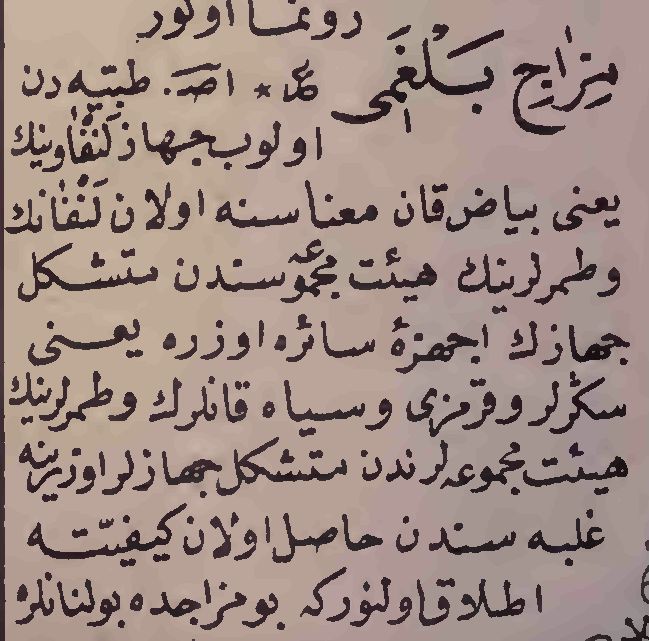 رونما اولور
مِزَاجِ بَلْغَمِى اصـ. طبّيه دن
اولوب جهاز لَنْفَاوينك
يعنى بياض قان معناسنه اولان لَنْفَانك
وطمرلرينك هيئت مجموعه سندن متشكل
جهازك اجهزۀ سائره اوزره يعنى
سكرلر وقرمزى وسياه قانلرك وطمرلرينك
هيئت مجموعه لرندن متشكل جهازلر اوزرينه
غلبه سندن حاصل اولان كيفيّته
اطلاق اولنوركه بو مزاجده بولنانلر